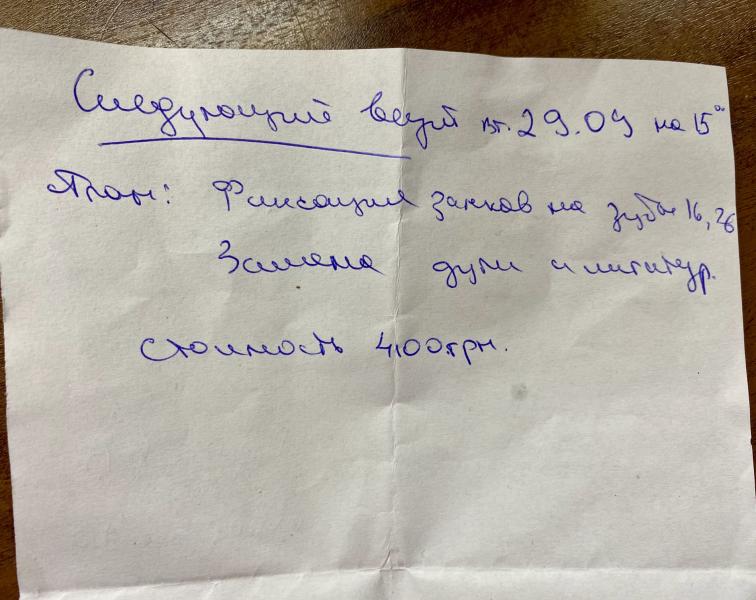 Следующий визит вт. 29.09 на 15⁰⁰
План: Фиксация замков на зубы 16, 26
Замена дуги и лигатур.
Стоимость 4100 грн.